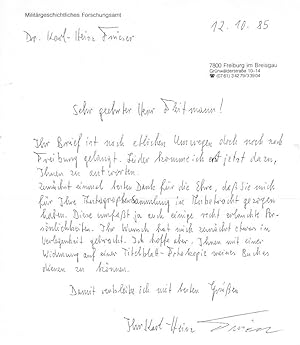 Militärgeschichtliches Forschungsamt
12.10.85
Dr. Karl-Heinz Frieser
7800 Freiburg im Breisgau
Grünwälderstraße 10-14
Sehr geehrter Herr
Ihr Brief ist nach etlichen Umwegen doch noch nach
Freiburg gelangt. Leider komme ich erst jetzt dazu,
Ihnen zu antworten.
Zunächst einmal besten Dank für die Ehre, daß Sie mich
für Ihre Autographensammlung in Betracht gezogen
haben. Diese umfaßt ja auch einige recht erlauchte Per-
sönlichkeiten. Ihr Wunsch hat mich zunächst etwas in
Verlegenheit gebracht. Ich hoffe aber, Ihnen mit einer
Widmung auf einer Titelblatt-Fotokopie meines Buches
dienen zu können.
Damit verbleibe ich mit besten Grüßen
Ihr Karl-Heinz Frieser